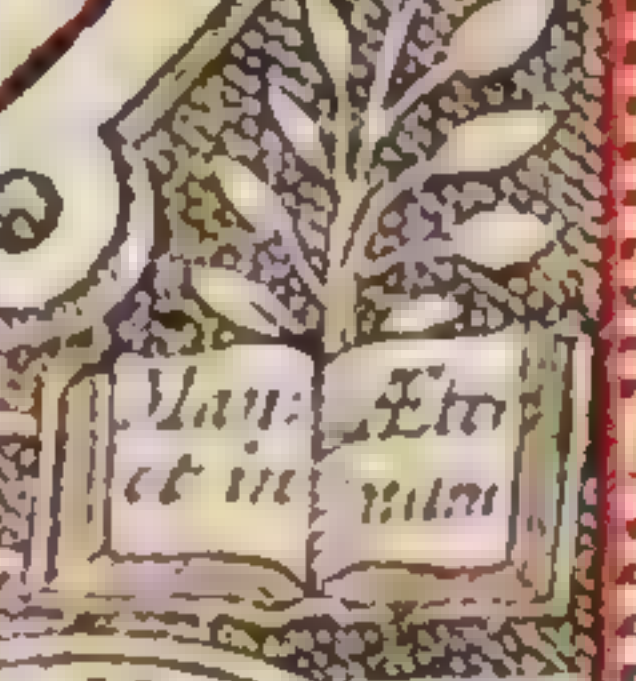 Man:
et in
Æter
num